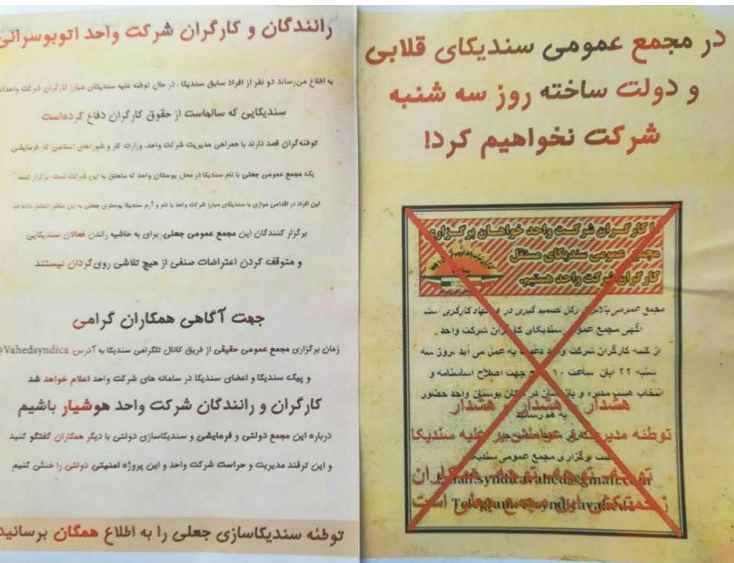 در مجمع عمومی سندیکای قلابی
و دولت ساخته روز سه شنبه
شرکت نخواهیم کرد!
ما کارگران شرکت واحد خواهان برگزاری
مجمع عمومی سندیکای مستقل
کارگران شرکت واحد هستیم.
مجمع عمومی بالاترین رکن تصمیم گیری در هر نهاد کارگری است
آگهی مجمع عمومی سندیکای کارگران شرکت واحد
از کلیه کارگران شرکت واحد دعوت به عمل می آید روز سه
شنبه ۲۲ آبان ساعت ۱۰ جهت اصلاح اساسنامه و
انتخاب هیئت مدیره و بازرسان در مکان بوستان واحد حضور
به هم رسانند
هشدار هشدار هشدار
توطئه مدیریت و عواملش بر علیه سندیکا
جهت برگزاری مجمع عمومی سندیکا
توجه توجه توجه همکاران
Email.syndicavahed@gmail.com
زحمتکش این مجمع جعلی است
Telegram.syndicavahed
رانندگان و کارگران شرکت واحد اتوبوسرانی
به اطلاع می‌رساند دو نفر از افراد سابق سندیکا، در حال توطئه علیه سندیکای مبارز کارگران شرکت واحدند
سندیکایی که سالهاست از حقوق کارگران دفاع کرده‌است
توطئه‌گران قصد دارند با همراهی مدیریت شرکت واحد، وزارت کار و شوراهای اسلامی کار فرمایشی
یک مجمع عمومی جعلی با نام سندیکا در محل بوستان واحد که متعلق به این شرکت است، برگزار کنند
این افراد در اقدامی موازی با سندیکای مبارز شرکت واحد با نام و آرم سندیکا پوستری جعلی به این منظور انتشار داده اند
برگزار کنندگان این مجمع عمومی جعلی، برای به حاشیه راندن فعالان سندیکایی
و متوقف کردن اعتراضات صنفی از هیچ تلاشی روی‌گردان نیستند
جهت آگاهی همکاران گرامی
زمان برگزاری مجمع عمومی حقیقی از طریق کانال تلگرامی سندیکا به آدرس @Vahedsyndica
و پیک سندیکا و اعضای سندیکا در سامانه های شرکت واحد اعلام خواهد شد
کارگران و رانندگان شرکت واحد هوشیار باشیم
درباره این مجمع دولتی و فرمایشی و سندیکاسازی دولتی با دیگر همکاران گفتگو کنید
و این ترفند مدیریت و حراست شرکت واحد و این پروژه امنیتی دولتی را خنثی کنیم
توطئه سندیکاسازی جعلی را به اطلاع همگان برسانید